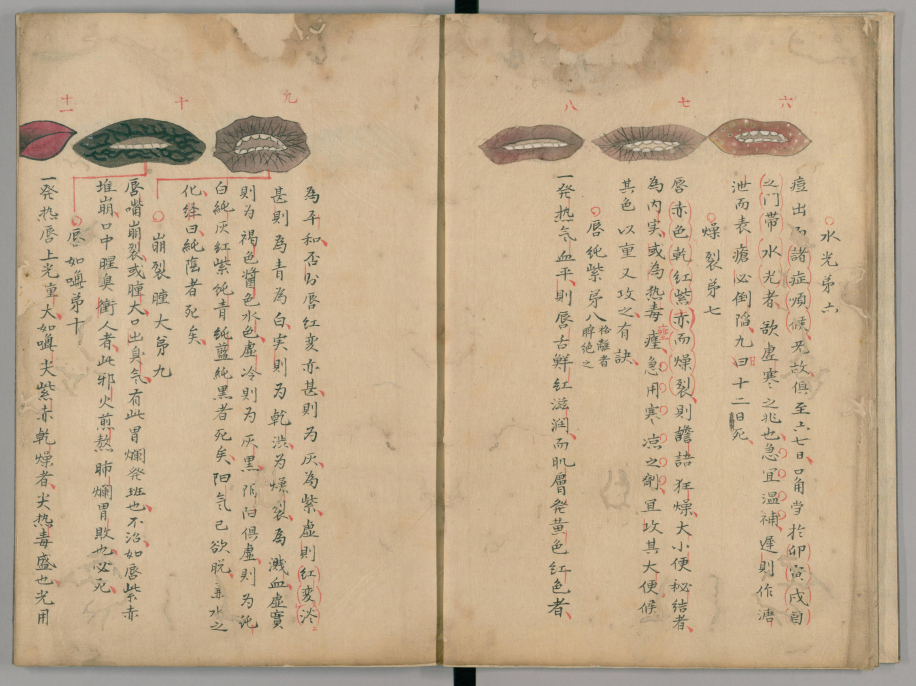 六
七
八
水光第六
痘出而諸症順候无故俱至六七日口角当於卯寅戌酉
之门帯水光者欲虚寒之兆也急宜温補遅則作溏
泄而表瘡必倒陷九日十二日死
燥裂第七
唇赤色乾紅紫赤而燥裂則譫語狂燥大小便秘結者
為内実或為热毒壅急用寒凉之劑宜攻其大便候
其色以重又攻之有訣
唇純紫第八 格離者 睥絶之
一発热气血平則唇舌鮮紅滋润而肌層発黄色紅色者
九
十
十一
為平和否則唇紅変赤甚則为灰為紫虚則紅変淡
甚則為青為白実則為乾渋为燥裂為濺血虚實
則为褐色醤色水色虚冷則为灰黒阴阳俱虚則为純
白純灰紅紫純青純藍純黒者死矣阳气已欲脱並水之
化経曰純陰者死矣
崩裂腫大第九
唇嘴崩裂或腫大口出臭气有此胃爛発班也不治如唇紫赤
堆崩口中腥臭衝人者此邪火煎熬肺爛胃敗也必死
唇如噀第十
一発热唇上光重大如噀尖紫赤乾燥者尖热毒盛也先用